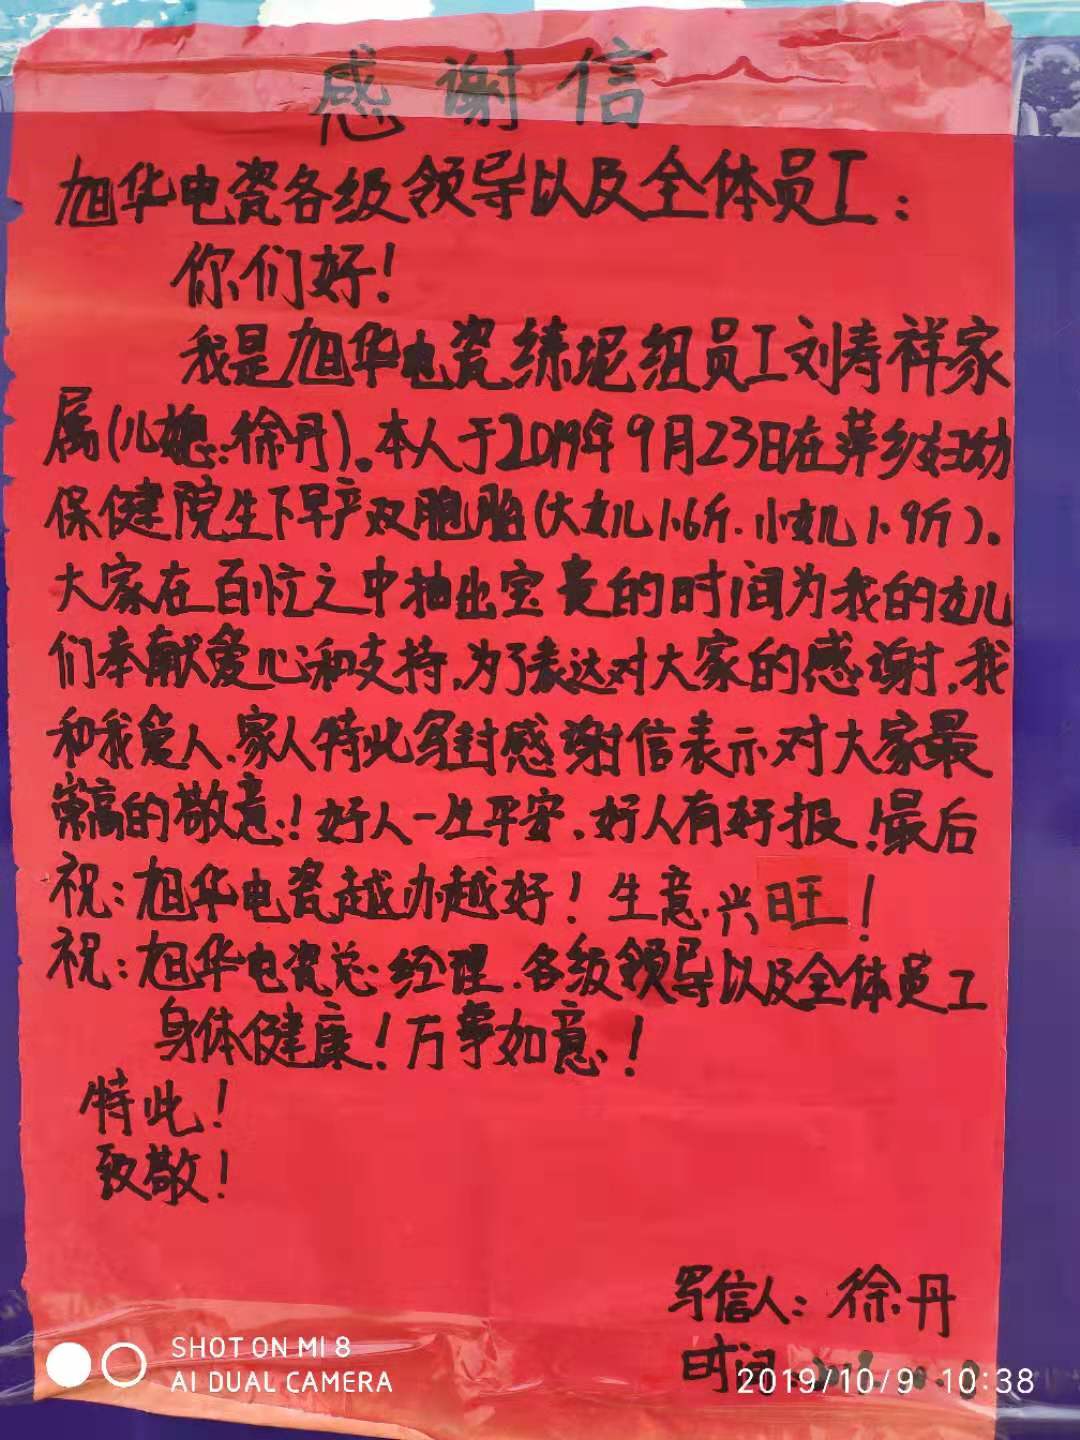 感谢信
旭华电瓷各级领导以及全体员工:
你们好!
我是旭华电瓷练坭组员工刘寿祥家
属(儿媳:徐丹)。本人于2019年9月23日在萍乡妇幼
保健院生下早产双胞胎(大女儿1.6斤.小女儿1.9斤)。
大家在百忙之中抽出宝贵的时间为我的女儿
们奉献爱心和支持,为了表达对大家的感谢,我
和我爱人、家人特此写封感谢信表示对大家最
崇高的敬意!好人一生平安,好人有好报!最后
祝:旭华电瓷越办越好!生意兴旺!
祝:旭华电瓷总经理.各级领导以及全体员工
身体健康!万事如意!
特此!
致敬!
写信人:徐丹
时间
SHOT ON MI 8
AI DUAL CAMERA
2019/10/9 10:38